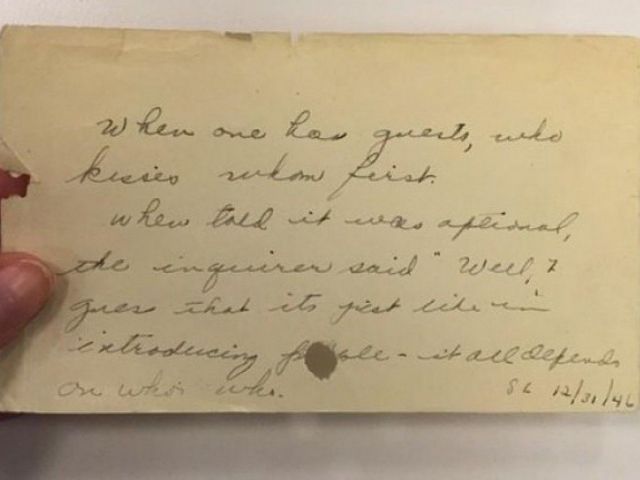 When one has guests, who
kisses whom first.
When told it was optional,
the inquirer said "Well, I
guess that its just like in
introducing people - it all depends
on who's who.
SL 12/31/46